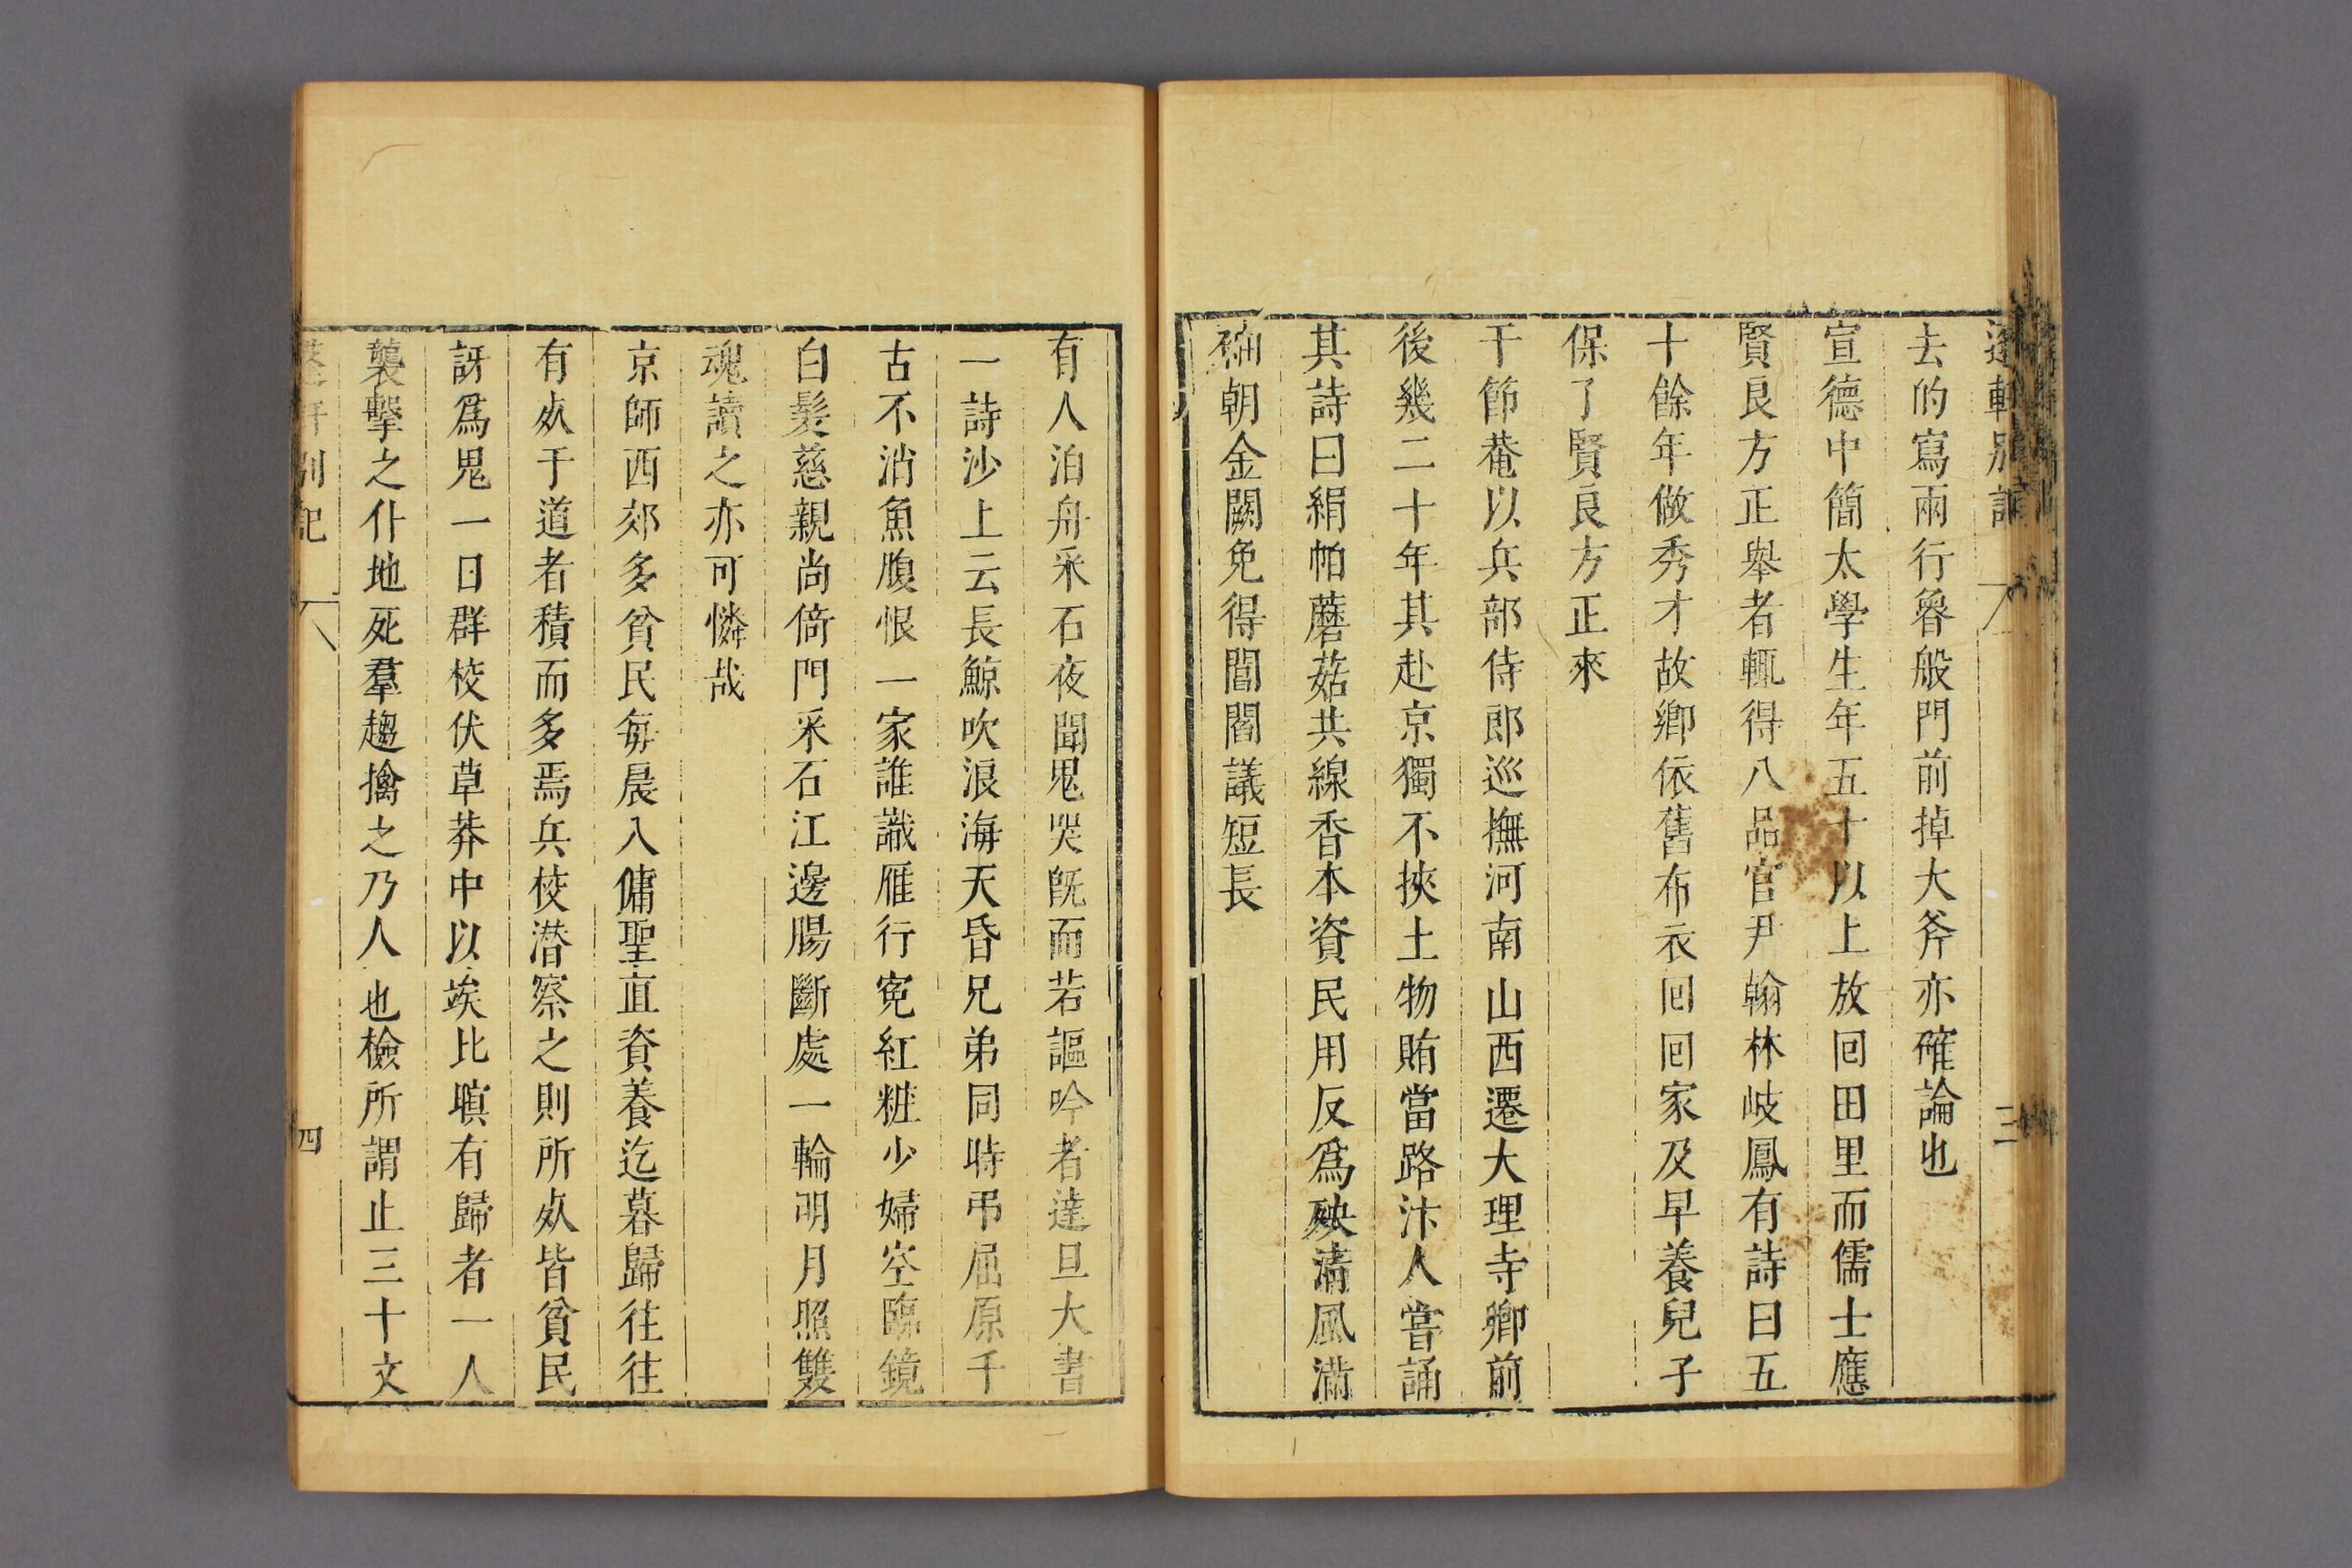 蓬軒別記
三
去的寫兩行魯般門前掉大斧亦確論也
宣德中簡太學生年五十以上放回田里而儒士應
賢良方正舉者輒得八品官尹翰林岐鳳有詩曰五
十餘年做秀才故鄉依舊布衣回回家及早養兒子
保了賢良方正來
于節菴以兵部侍郎巡撫河南山西遷大理寺卿前
後幾二十年其赴京獨不挾土物賄當路汴人嘗誦
其詩曰絹帕蘑菇共線香本資民用反爲殃淸風滿
袖朝金闕免得閭閻議短長
有人泊舟采石夜聞鬼哭旣而若謳吟者達旦大書
一詩沙上云長鯨吹浪海天昏兄弟同時弔屈原千
古不消魚腹恨一家誰識雁行寃紅粧少婦空臨鏡
白髮慈親尚倚門采石江邊腸斷處一輪明月照雙
魂讀之亦可憐哉
京師西郊多貧民每晨入傭聖直資養迄暮歸往往
有處于道者積而多焉兵校潜察之則所處皆貧民
訝爲鬼一日群校伏草莽中以俟比暝有歸者一人
襲擊之仆地死羣趨擒之乃人也檢所謂止三十文
蓬軒別記
四